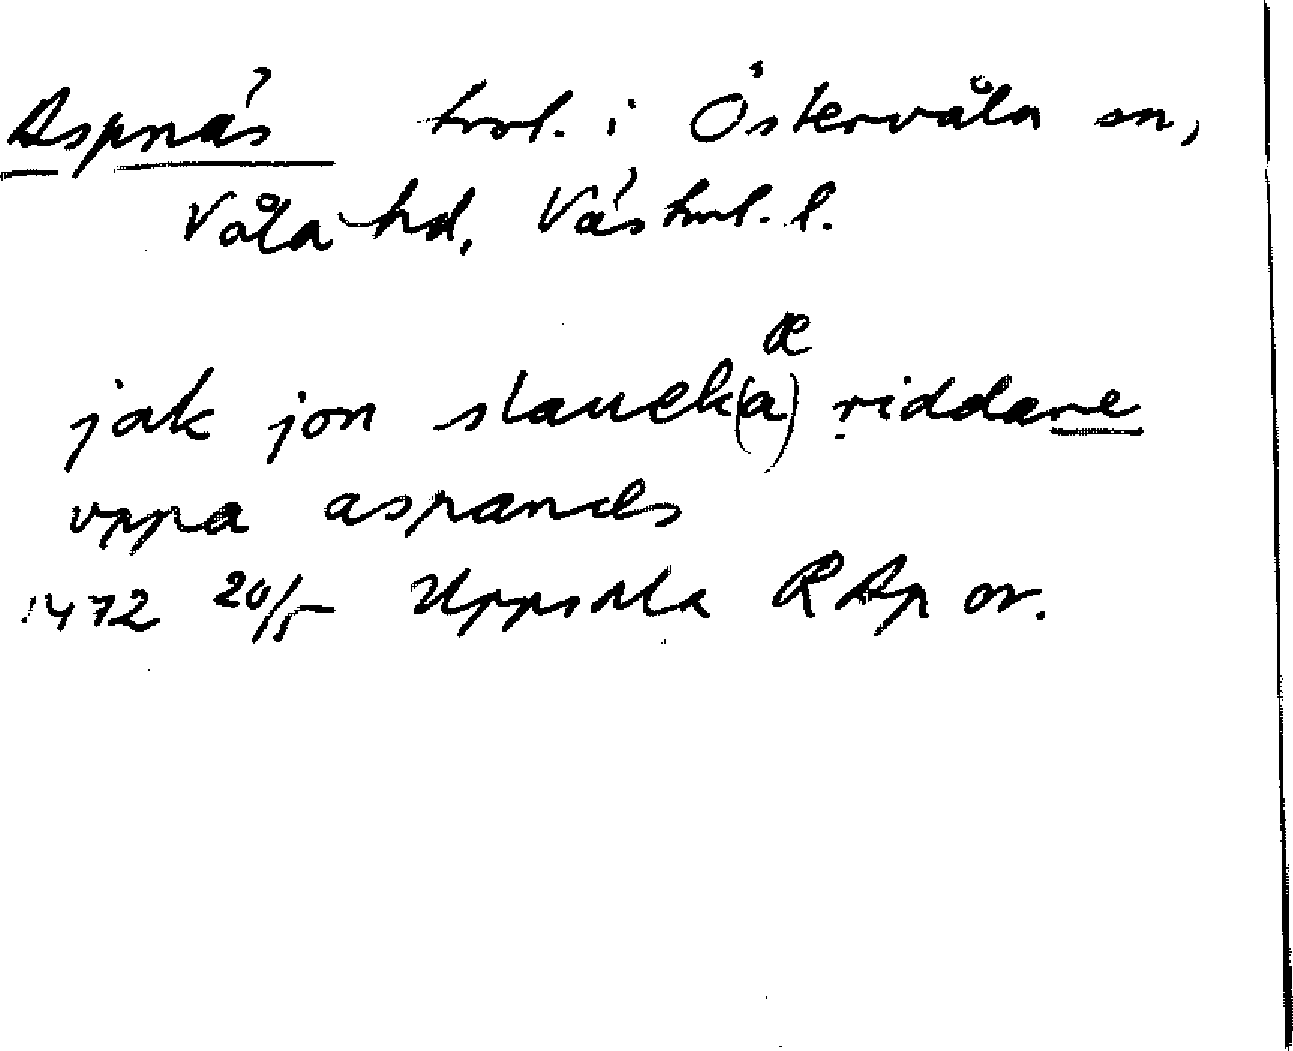 Aspnäs trol. i Östervåla sn,
Våla hd, Västml. l.
æ
jak jon slauek(a) riddare
vppa aspanæs
1472 20/5 Uppsala RAp or.